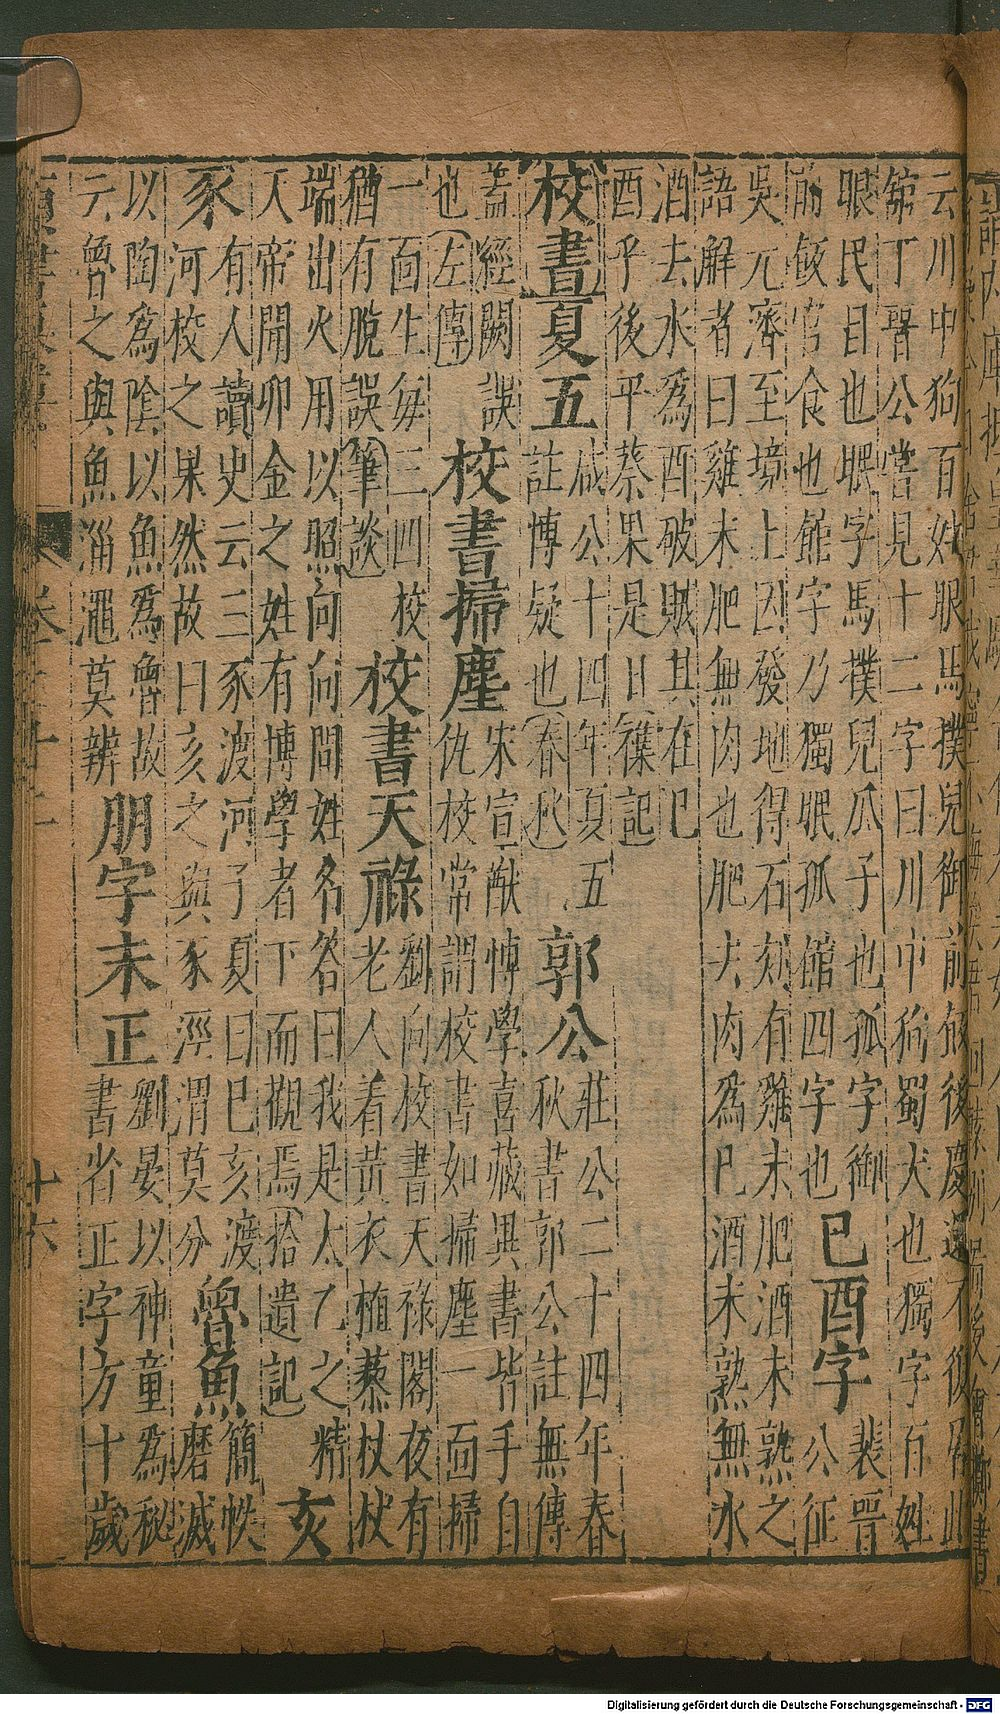 云川中狗百姓眼馬撲兒御前飯後慶還不復得此
館丁晉公嘗見十二字曰川中狗蜀犬也獨字百姓
眼民目也眠字馬撲兒瓜子也孤字御
前飯官食也館字乃獨眠孤館四字也
巳酉字
裴晉
公征
吳元濟至境上因發地得石刻有雞未肥酒未熟之
語解者曰雞未肥無肉也肥去肉爲巳酒未熟無水
酒去水爲酉破賊其在巳
酉乎後平蔡果是日雜記
校書夏五
咸公十四年夏五
註博疑也春秋
郭公
莊公二十四年春
秋書郭公註無傳
蓋經闕誤
也左傳
校書掃塵
宋宣獻博學喜藏異書皆手自
仇校常謂校書如掃塵一面掃
一面生每三四校
猶有脫誤筆談
校書天祿
劉向校書天祿閣夜有
老人着黃衣植藜杖杖
端出火用以照向向問姓名答曰我是太乙之精
人帝聞卯金之姓有博學者下而觀焉拾遺記
亥
豕
有人讀史云三豕渡河子夏曰巳亥渡
河校之果然故曰亥之與豕涇渭莫分
魯魚
簡帙
磨滅
以陶爲陰以魚爲魯故
云魯之與魚淄澠莫辨
朋字未正
劉晏以神童爲秘
書省正字方十歲
十六
Digitalisierung gefördert durch die Deutsche Forschungsgemeinschaft - DFG